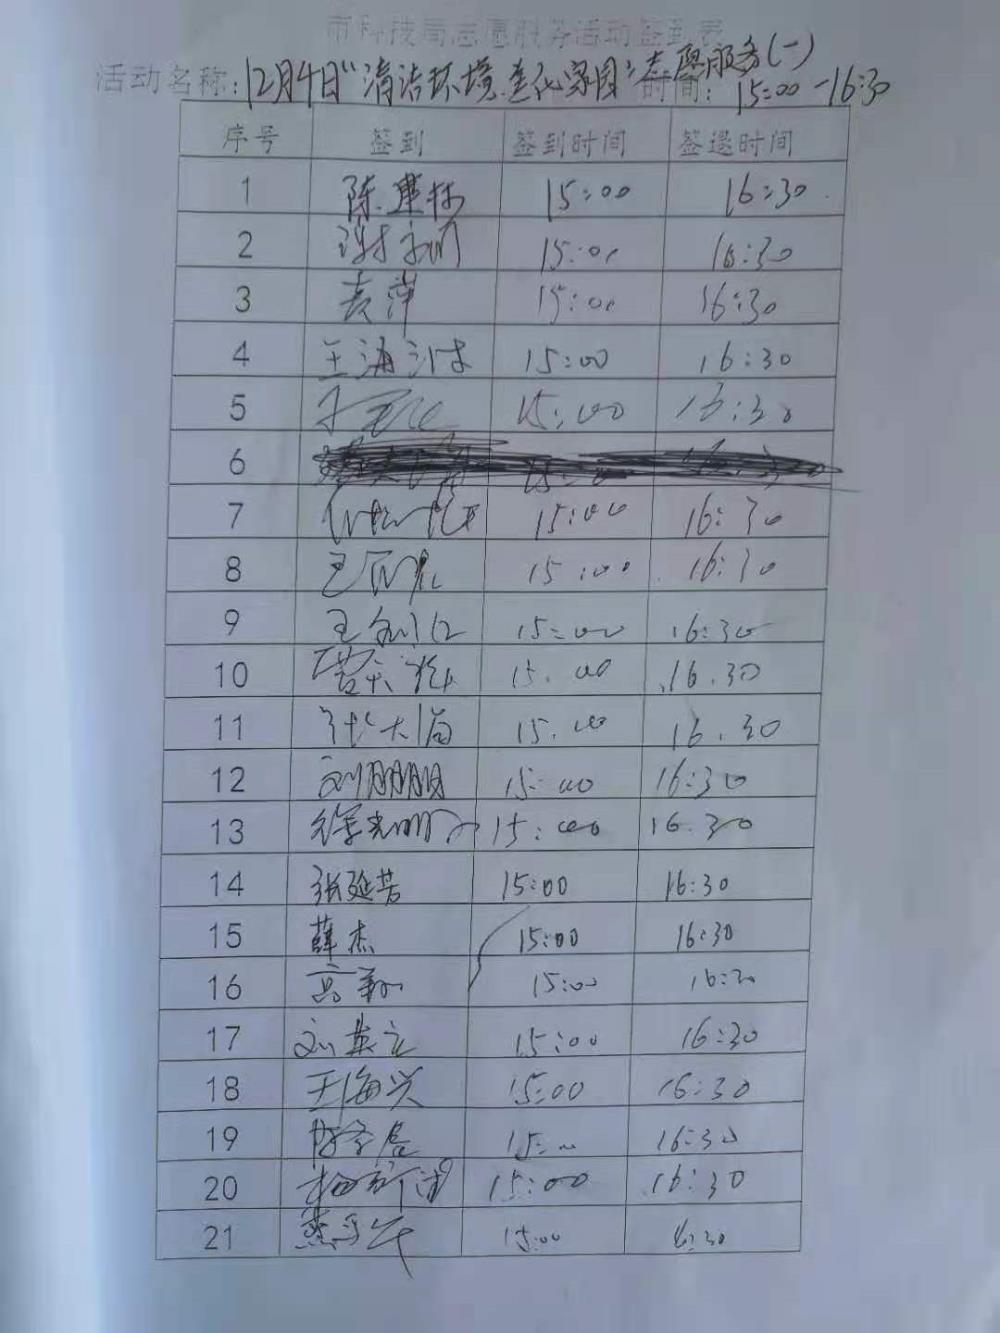 市科技局志愿服务活动签到表
活动名称:12月4日"清洁环境,美化家园"志愿服务(一) 时间:15:00-16:30
序号 签到 签到时间 签退时间
1 陈建林 15:00 16:30
2 15:00 16:30
3 袁萍 15:00 16:30
4 王海 15:00 16:30
5 15:00 16:30
6
7 15:00 16:30
8 王 15:00 16:30
9 王 15:00 16:30
10 15.00 16.30
11 张大 15.00 16.30
12 刘朋朋 15:00 16:30
13 徐光明 15:00 16.30
14 张延芳 15:00 16:30
15 薛杰 15:00 16:30
16 高翔 15:00 16:30
17 刘英 15:00 16:30
18 王海兴 15:00 16:30
19 15:00 16:30
20 杨 15:00 16:30
21 燕 15:00 6:30